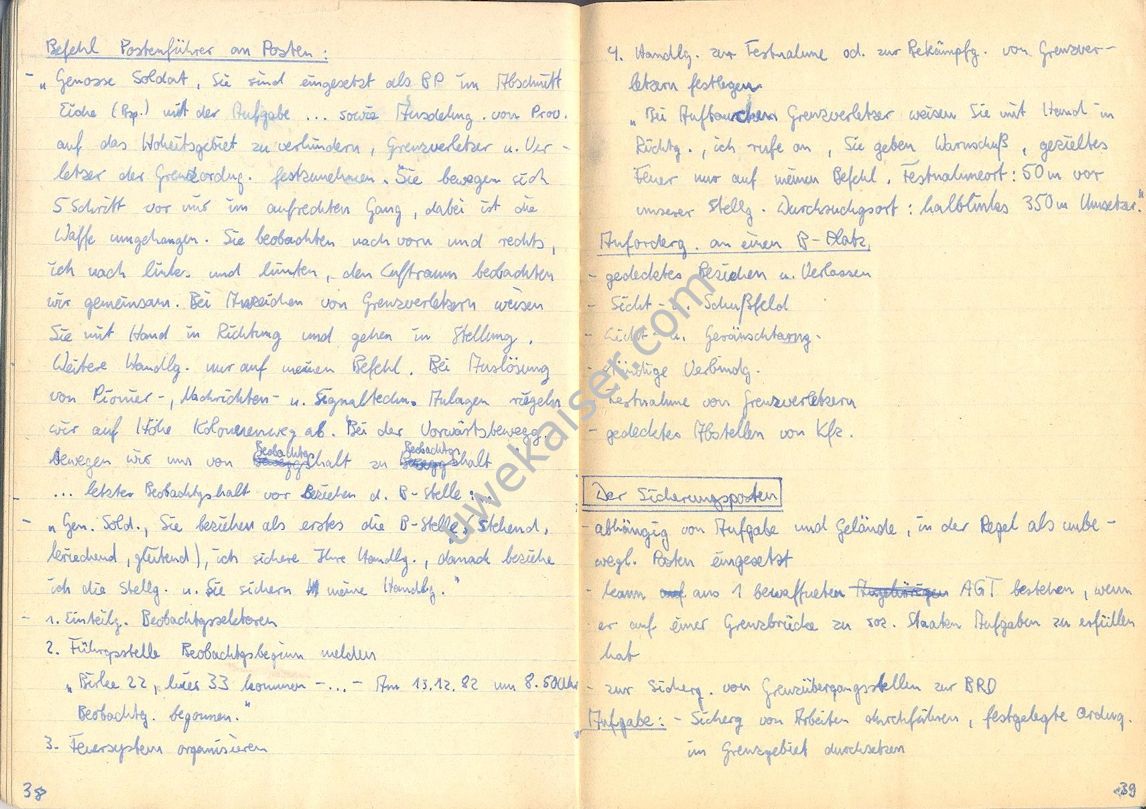 Befehl Postenführer an Posten:
- „Genosse Soldat, Sie sind eingesetzt als BP im Abschnitt
Eiche (Bsp.) mit der Aufgabe ... sowie Ausdehng. von Prov.
auf das Hoheitsgebiet zu verhindern, Grenzverletzer u. Ver-
letzer der Grenzordng. festzunehmen. Sie bewegen sich
5 Schritt vor mir im aufrechten Gang, dabei ist die
Waffe umgehangen. Sie beobachten nach vorn und rechts,
ich nach links und hinten, den Luftraum beobachten
wir gemeinsam. Bei Anzeichen von Grenzverletzern weisen
Sie mit Hand in Richtung und gehen in Stellung.
Weitere Handlg. nur auf meinen Befehl. Bei Auslösung
von Pionier-, Nachrichten- u. Signaltechn. Anlagen riegeln
wir auf Höhe Kolonnenweg ab. Bei der Vorwärtsbewegg.
bewegen wir uns von Beobachtgshalt zu Beobachtgshalt
... letzter Beobachtgshalt vor Beziehen d. B-Stelle:
- „Gen. Sold., Sie beziehen als erstes die B-Stelle (stehend,
kriechend, gleitend), ich sichere Ihre Handlg., danach beziehe
ich die Stellg. u. Sie sichern meine Handlg."
- 1. Einteilg. Beobachtgssektoren
2. Führgsstelle Beobachtgsbeginn melden
„Birke 22, hier 33 kommen -...- Am 13.12.82 um 8.50 Uhr
Beobachtg. begonnen."
3. Feuersystem organisieren
38
4. Handlg. zur Festnahme od. zur Bekämpfg. von Grenzver-
letzern festlegen
„Bei Auftauchen Grenzverletzer weisen Sie mit Hand in
Richtg., ich rufe an, Sie geben Warnschuß, gezieltes
Feuer nur auf meinen Befehl. Festnahmeort: 50m vor
unserer Stellg. Durchsuchgsort: halblinks 350m Umsetzer."
Anforderg. an einen B-Platz
- gedecktes Beziehen u. Verlassen
- Sicht- u. Schußfeld
- Licht- u. Geräuschtarng.
- ständige Verbindg.
- Festnahme von Grenzverletzern
- gedecktes Abstellen von Kfz.
Der Sicherungsposten
- abhängig von Aufgabe und Gelände, in der Regel als unbe-
wegl. Posten eingesetzt
- kann aus 1 bewaffneten AGT bestehen, wenn
er auf einer Grenzbrücke zu soz. Staaten Aufgaben zu erfüllen
hat
- zur Sicherg. von Grenzübergangsstellen zur BRD
Aufgabe: - Sicherg von Arbeiten durchführen, festgelegte Ordng.
im Grenzgebiet durchsetzen
39
uwekaiser.com